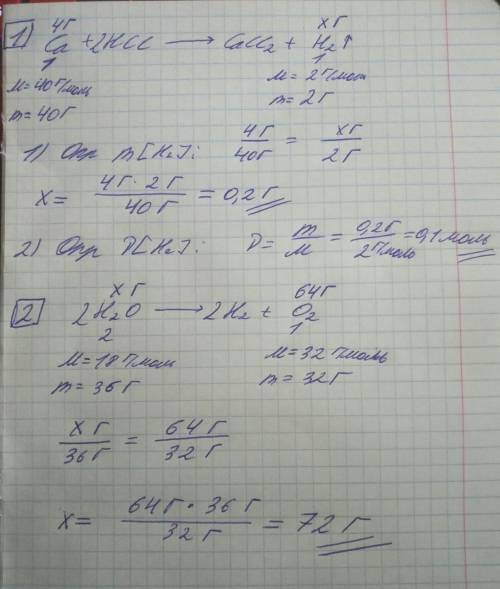 1) 4г хг
Ca + 2HCl ⟶ CaCl₂ + H₂↑
1 1
M=40г/моль M=2г/моль
m=40г m=2г
1) Опр m[H₂]: 4г/40г = хг/2г
x= 4г·2г/40г = 0,2г
2) Опр D[H₂]: D= m/M = 0,2г/2г/моль = 0,1 моль
2 хг 64г
2H₂O ⟶ 2H₂ + O₂
2 1
M=18г/моль M=32г/моль
m=36г m=32г
хг/36г = 64г/32г
x= 64г·36г/32г = 72г